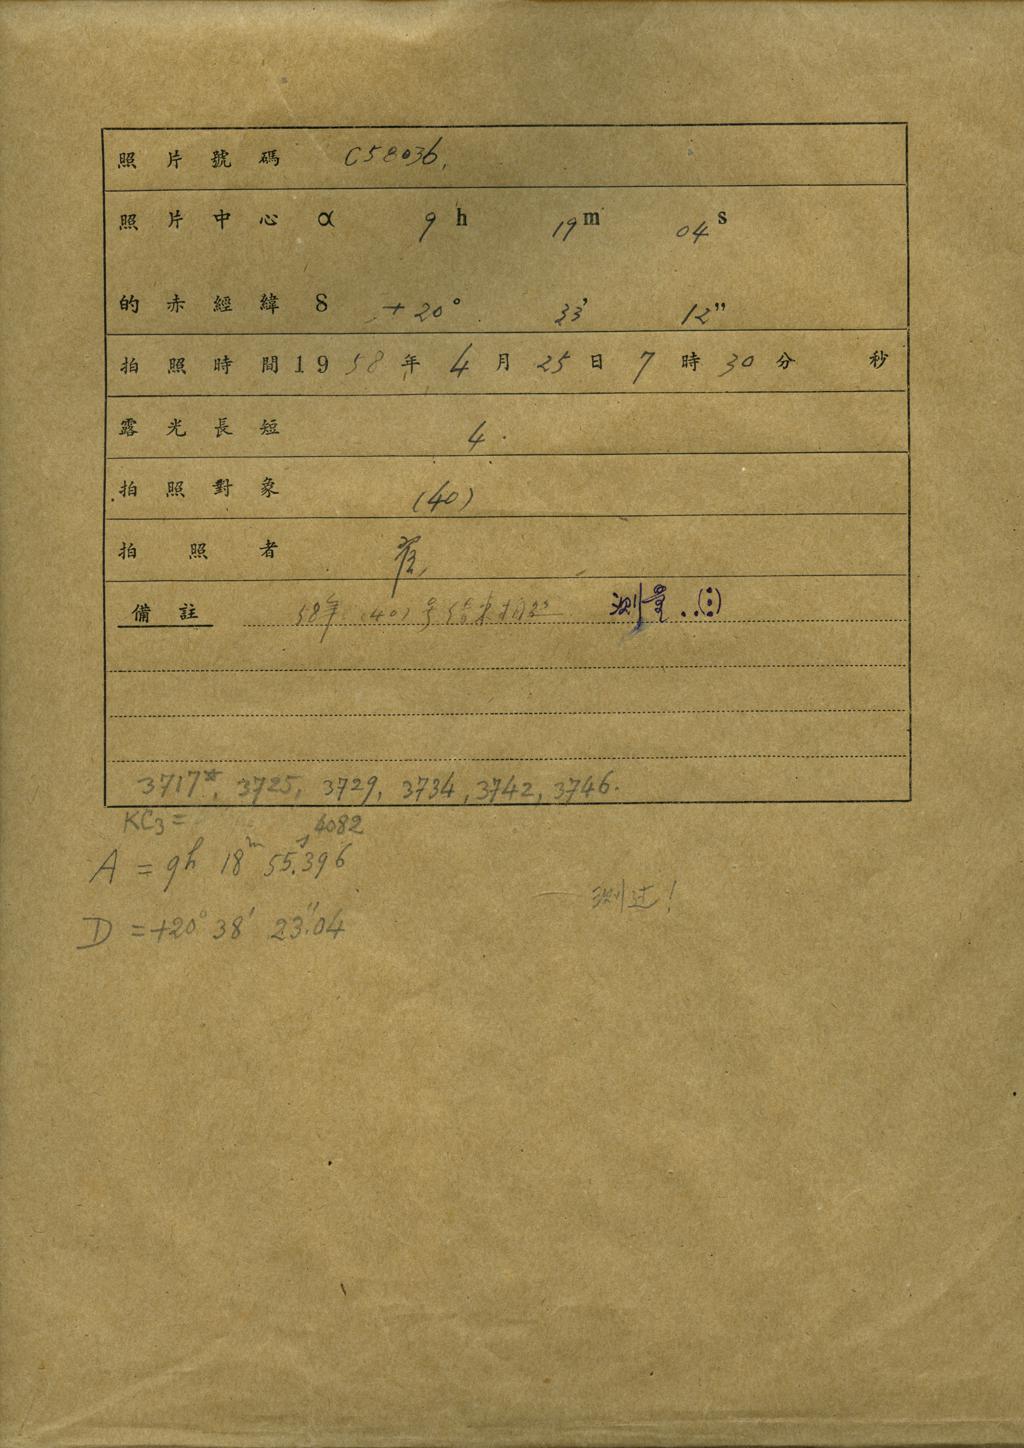 照片號碼 C58036,
照片中心 α 9h 19m 04s
的赤經緯 δ +20° 33′ 12″
拍照時間 1958年 4月 25日 7時 30分 秒
露光長短 4.
拍照對象 (40)
拍照者
備註 58年 (40) 号 测量..(⋮)
3717*, 3725, 3729, 3734, 3742, 3746.
KC3= 4082
A = 9h 18m 55.s396
D = +20° 38′ 23.″04
测过!